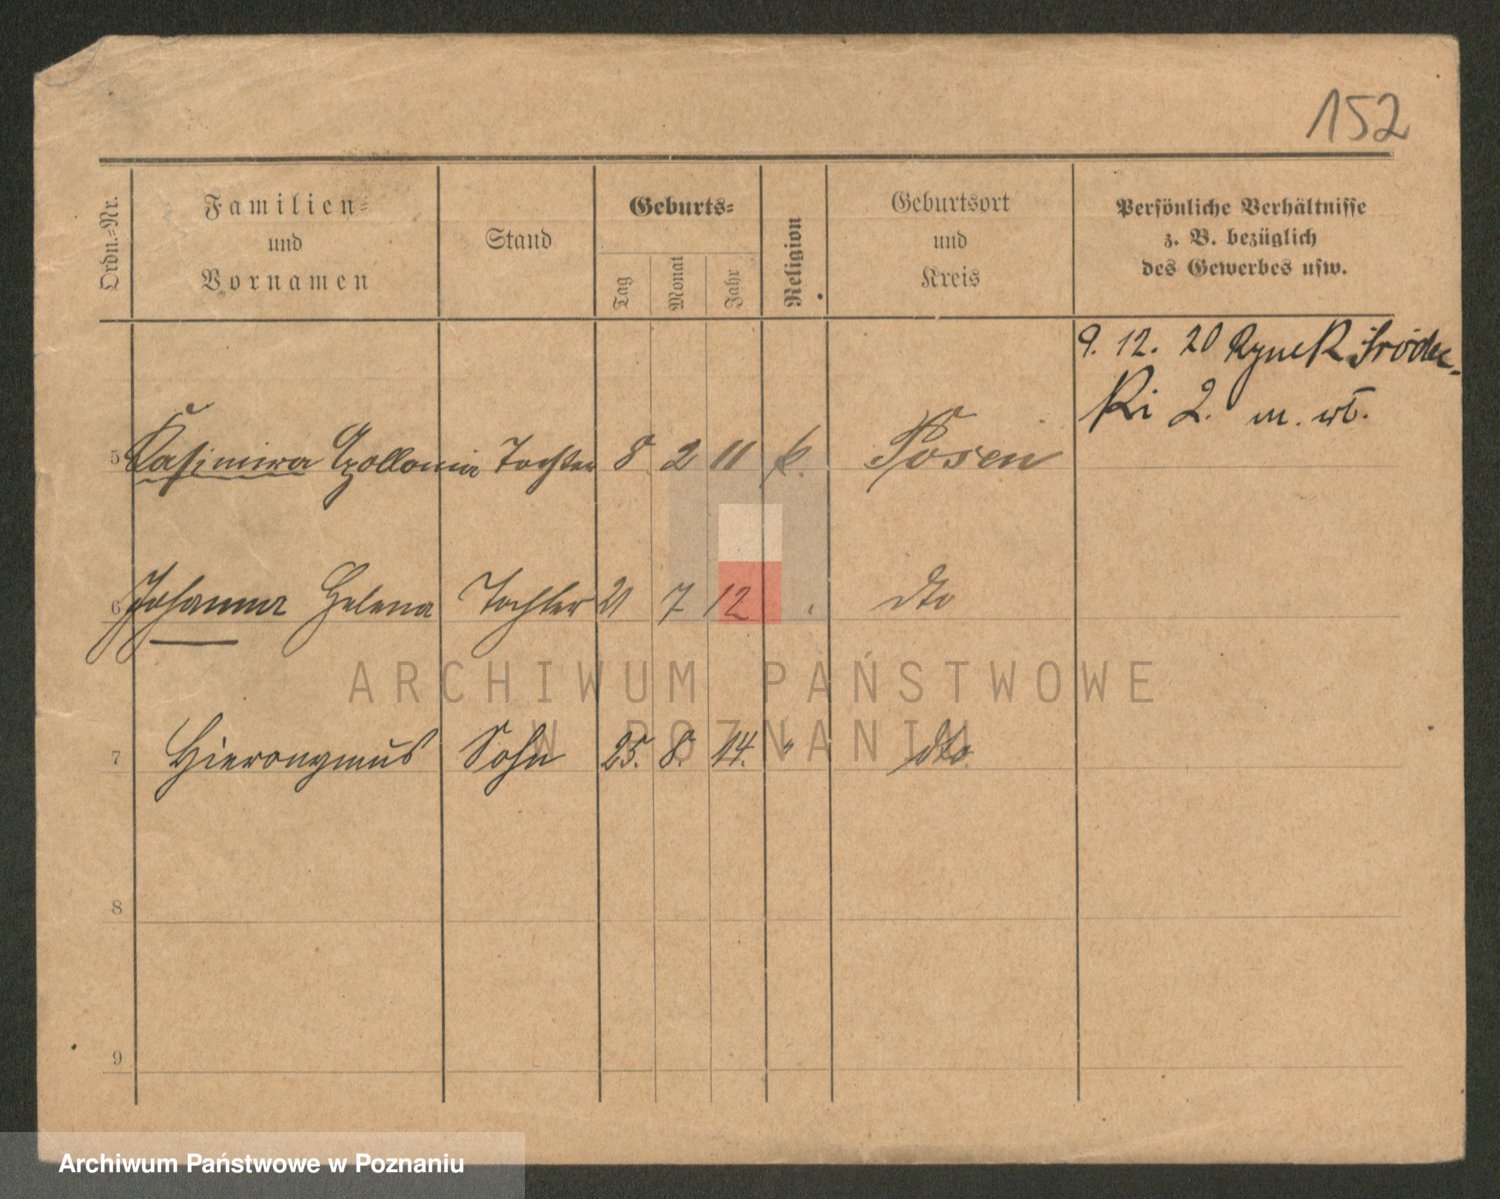 152
Ordn.=Nr.
Familien=
und
Vornamen
Stand
Geburts=
Tag
Monat
Jahr
Religion
Geburtsort
und
Kreis
Persönliche Verhältnisse
z. B. bezüglich
des Gewerbes usw.
9. 12. 20 Rynek Śródec-
ki 2. m. wł.
5 Kasimira Apollonia Tochter 8 2 11 k. Posen
6 Johanna Helena Tochter 21 7 12 " dto
7 Hieronymus Sohn 25. 8. 14. " dto.
8
9
ARCHIWUM PAŃSTWOWE
W POZNANIU
Archiwum Państwowe w Poznaniu